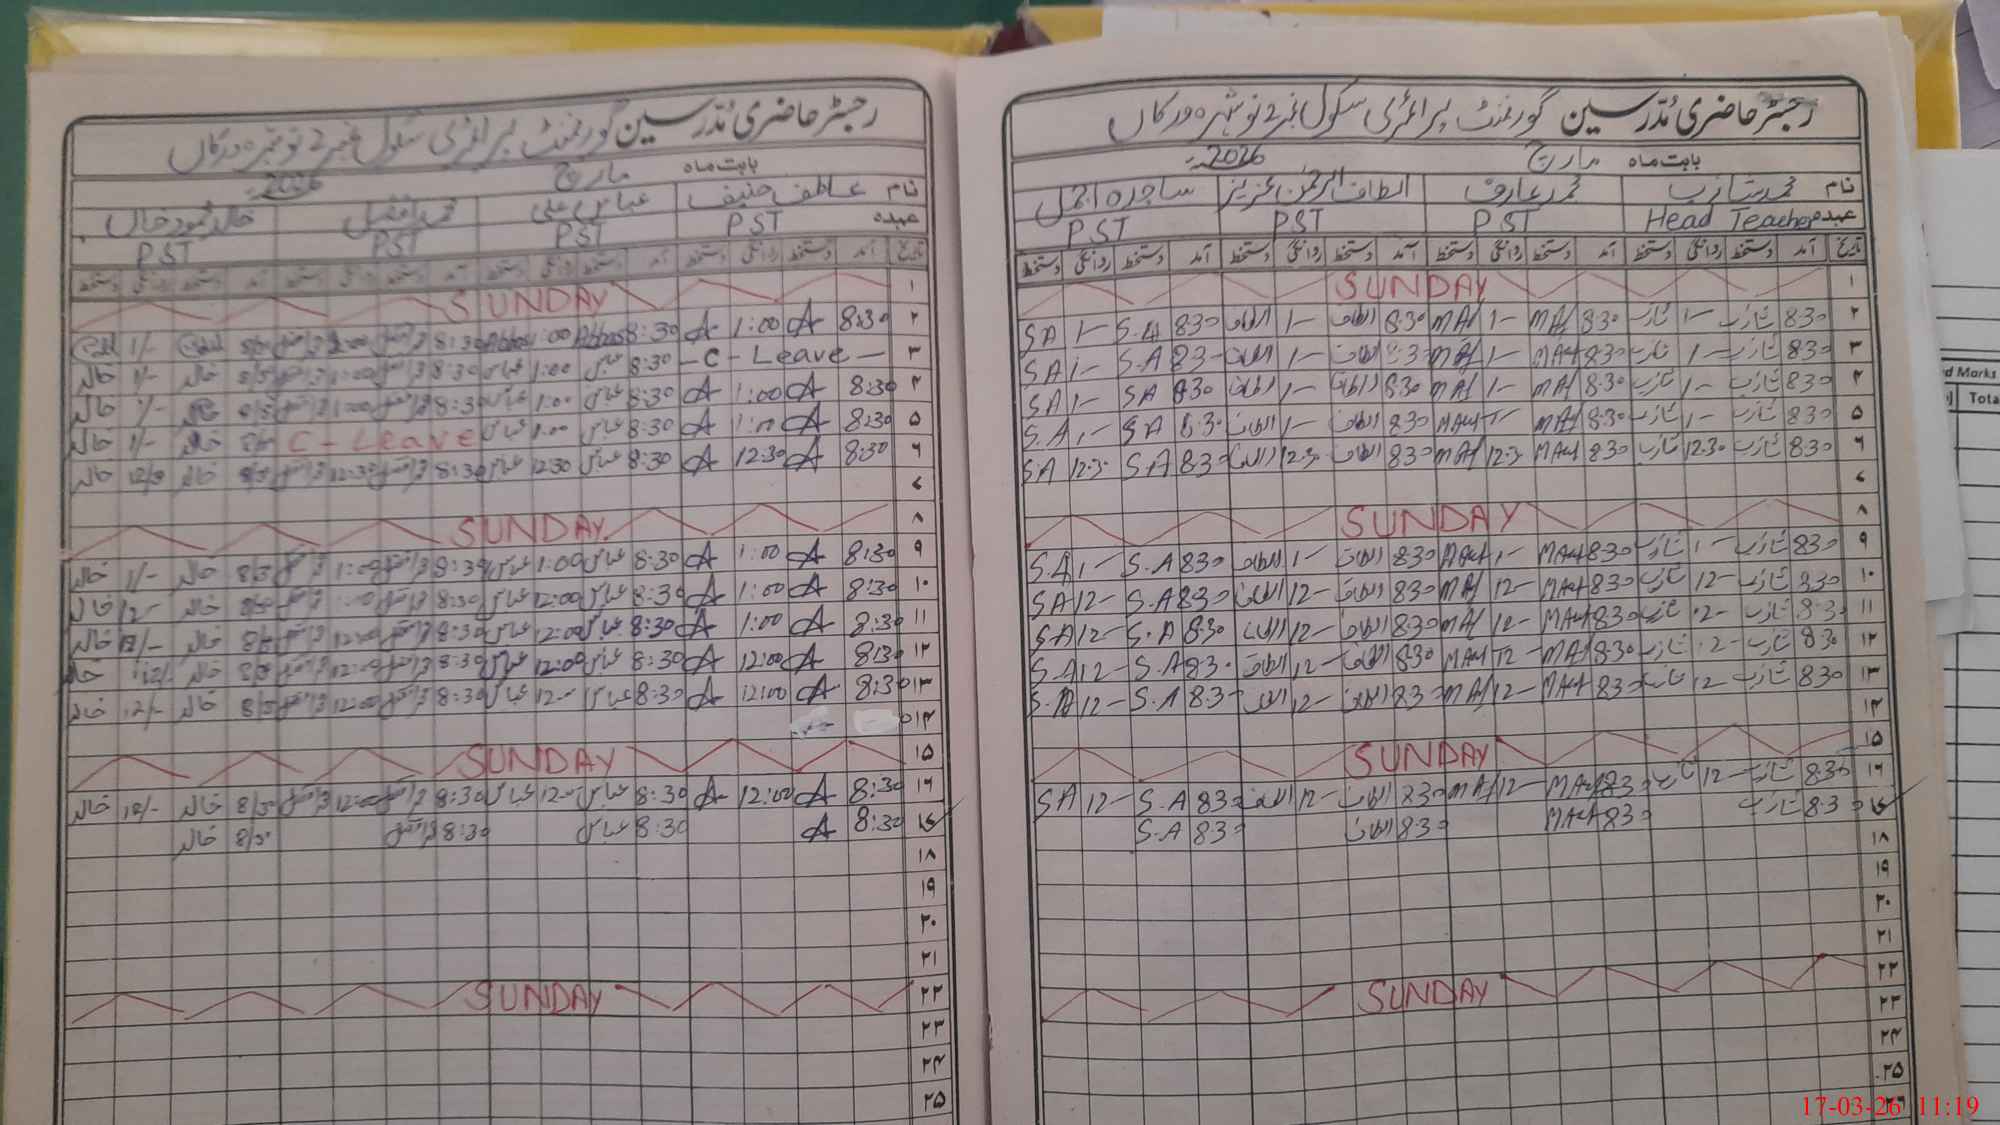 رجسٹر حاضری مُدرسین گورنمنٹ پرائمری سکول نمبر 2 نوشہرہ ورکاں
بابت ماہ مارچ 2026ء
نام محمد شازب محمد عارف الطاف الرحمٰن عزیز ساجدہ اجمل
عہدہ Head Teacher PST PST PST
تاریخ آمد دستخط روانگی دستخط آمد دستخط روانگی دستخط آمد دستخط روانگی دستخط آمد دستخط روانگی دستخط
۱ SUNDAY
۲ 8:30 شازب 1- شازب 8:30 MAf 1- MAf 8:30 الطاف 1- الطاف 8:30 S.A 1- SA
۳ 8:30 شازب 1- شازب 8:30 MAf 1- MAf 8:30 الطاف 1- الطاف 8:3- S.A 1- SA
۴ 8:30 شازب 1- شازب 8:30 MAf 1- MAf 8:30 الطاف 1- الطاف 8:30 SA 1- SA
۵ 8:30 شازب 1- شازب 8:30 MAf 1- 8:30 الطاف 1- الطاف 8:30 SA 1- S.A
۶ 8:30 شازب 12:30 شازب 8:30 MAf 12:3 MAf 8:30 الطاف 12:3 الطاف 8:30 S.A 12:3 S.A
۷
۸ SUNDAY
۹ 8:30 شازب 1- شازب 8:30 MAf 1- MAf 8:30 الطاف 1- الطاف 8:30 S.A 1- S.A
۱۰ 8:30 شازب 12- شازب 8:30 MAf 12- MAf 8:30 الطاف 12- الطاف 8:30 S.A 12- SA
۱۱ 8:30 شازب 12- شازب 8:30 MAf 12- MAf 8:30 الطاف 12- الطاف 8:30 S.A 12- S.A
۱۲ 8:30 شازب 12- شازب 8:30 MAf 12- MAf 8:30 الطاف 12- الطاف 8:30 S.A 12- S.A
۱۳ 8:30 شازب 12- شازب 8:30 MAf 12- MAf 8:30 الطاف 12- الطاف 8:30 S.A 12- S.A
۱۴
۱۵ SUNDAY
۱۶ 8:30 شازب 12- شازب 8:30 MAf 12- MAf 8:30 الطاف 12- الطاف 8:30 S.A 12- SA
۱۷ 8:30 شازب 8:30 MAf 8:30 الطاف 8:30 S.A
۱۸
۱۹
۲۰
۲۱
۲۲ SUNDAY
۲۳
۲۴
۲۵
۲۶
رجسٹر حاضری مُدرسین گورنمنٹ پرائمری سکول نمبر 2 نوشہرہ ورکاں
بابت ماہ مارچ 2026ء
نام عاطف حنیف عباس علی محمد افضل خالد محمود خاں
عہدہ PST PST PST PST
تاریخ آمد دستخط روانگی دستخط آمد دستخط روانگی دستخط آمد دستخط روانگی دستخط آمد دستخط روانگی دستخط
۱ SUNDAY
۲ 8:30 A 1:00 A 8:30 Abbas 1:00 Abbas 8:30 1:00 8/30 1/-
۳ - C - Leave - 8:30 عباس 1:00 عباس 8:30 1:00 8/30 خالد 1/- خالد
۴ 8:30 A 1:00 A 8:30 عباس 1:00 عباس 8:30 1:00 8/30 1/- خالد
۵ 8:30 A 1:00 A 8:30 عباس 1:00 عباس C - LEAVE 8/30 خالد 1/- خالد
۶ 8:30 A 12:30 A 8:30 عباس 12:30 عباس 8:30 12:30 8/30 خالد 12/30 خالد
۷
۸ SUNDAY
۹ 8:30 A 1:00 A 8:30 عباس 1:00 عباس 8:30 1:00 8/30 خالد 1/- خالد
۱۰ 8:30 A 1:00 A 8:30 عباس 12:00 عباس 8:30 8/30 خالد 12- خالد
۱۱ 8:30 A 1:00 A 8:30 عباس 12:00 عباس 8:30 12:00 8/30 خالد 12/- خالد
۱۲ 8:30 A 12:00 A 8:30 عباس 12:00 عباس 8:30 12:00 8/30 خالد 12/- خالد
۱۳ 8:30 A 12:00 A 8:30 عباس 12- عباس 8:30 12:00 8/30 خالد 12/- خالد
۱۴
۱۵ SUNDAY
۱۶ 8:30 A 12:00 A 8:30 عباس 12- عباس 8:30 12:00 8/30 خالد 12/- خالد
۱۷ 8:30 A 8:30 عباس 8:30 8/30 خالد
۱۸
۱۹
۲۰
۲۱
۲۲ SUNDAY
۲۳
۲۴
۲۵
d Marks
Tota
17-03-26 11:19